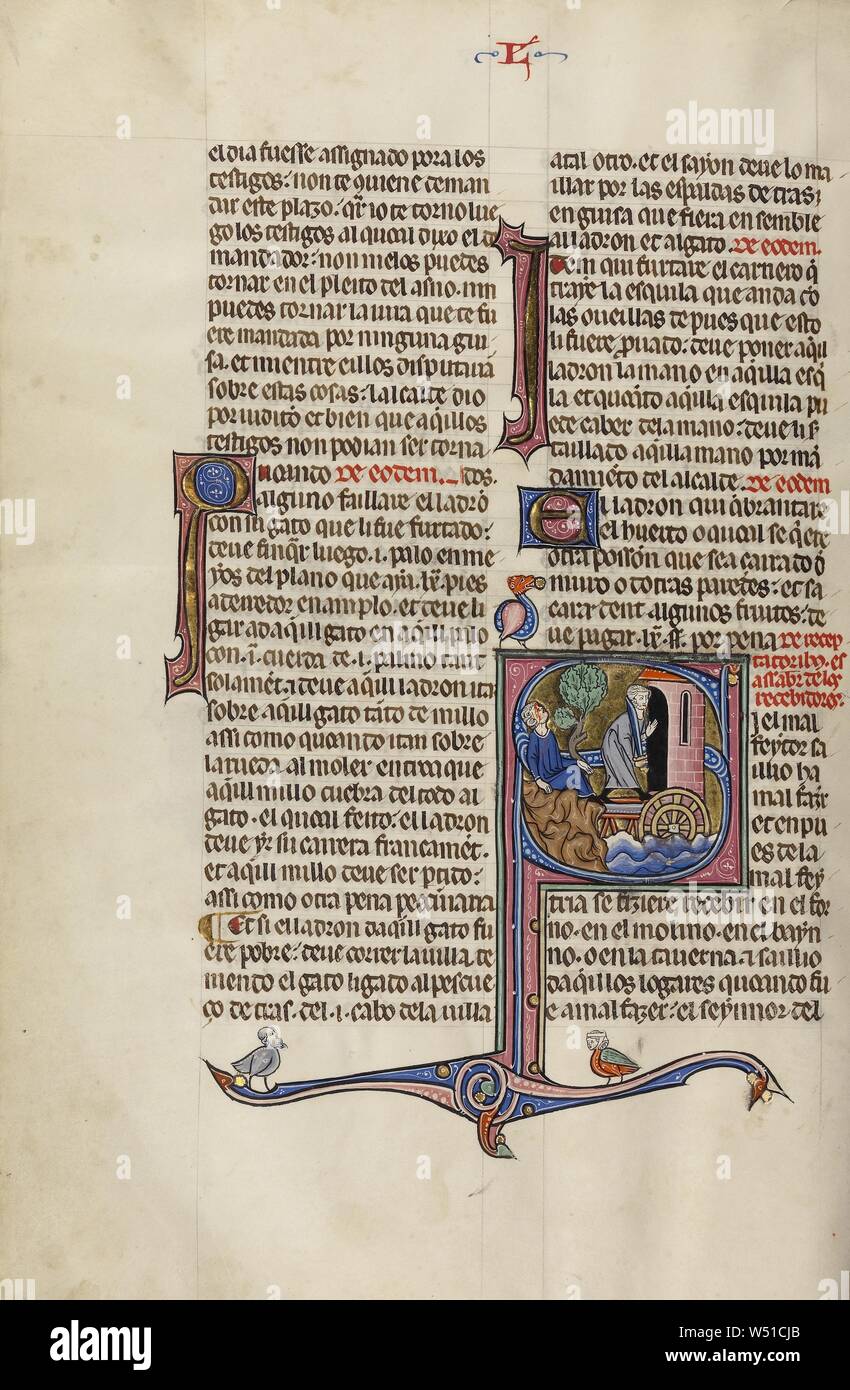 L
el dia fuesse assignado pora los
testigos: non te quiene deman
dar este plazo. qr io te torno lue
go los testigos al quoal dixo el de
mandador: non me los puedes
tornar en el pleito del asno. nin
puedes tornar la iura que te fu
ere mandada por ninguna gui
sa. et mientre eillos disputauan
sobre estas cosas: lalcalde dio
por iuditio et bien que aqillos
testigos non podian ser torna
Quoando De eodem. dos.
alguno faillare el ladro
con su gato que li fue furtado:
deue finqr luego .i. palo en me
yos del plano que aya .lx. pies
adenedor en amplo. et deue li
gar ad aqill gato en aqill palo
con .i. cuerda de .i. palmo tant
solament. a deue aqill ladron itar
sobre aqill gato tanto de millo
assi como quoando itan sobre
la rueda al moler entroa que
aqill millo cuebra del todo al
gato. el quoal feito: el ladron
deue yr su carrera francament.
et aqill millo deue ser partido:
assi como otra pena pecuniaria
Et si el ladron daqill gato fu
ere pobre: deue correr la uilla te
niendo el gato ligado al pescue
ço de tras. del .i. cabo dela uilla
atal otro. et el sayon deue lo ma
illar por las espaldas de tras;
en guisa que fiera en semble
al ladron et al gato. De eodem.
Item qui furtare el carnero q
traye la esquila que anda co
las oueillas depues que esto
li fuere prouado: deue poner aqill
ladron la mano en aqilla esq
la et quoanto aqilla esquila pu
ede caber dela mano: deue li sr
taillado aqilla mano por man
damiento del alcalde. De eodem
El ladron qui qbrantare
el huerto o quoal se qere
otra possion que sea çarrado o
muro o dotras paredes: et sa
cara dent algunos fruitos: de
ue pagar .lx. ss. por pena De recep
tatoribus. es
assaber delos
recebidores.
Si el mal
feytor sa
illio ha
mal fazer
et en pu
es de la
mal fey
tria se fiziere recebir en el for
no. en el molino. en el bayn
no. o en la tauerna. a saluo
daqillos logares quoando fu
e a mal fazer: el seynnor del
alamy
Image ID: W51CJB
www.alamy.com